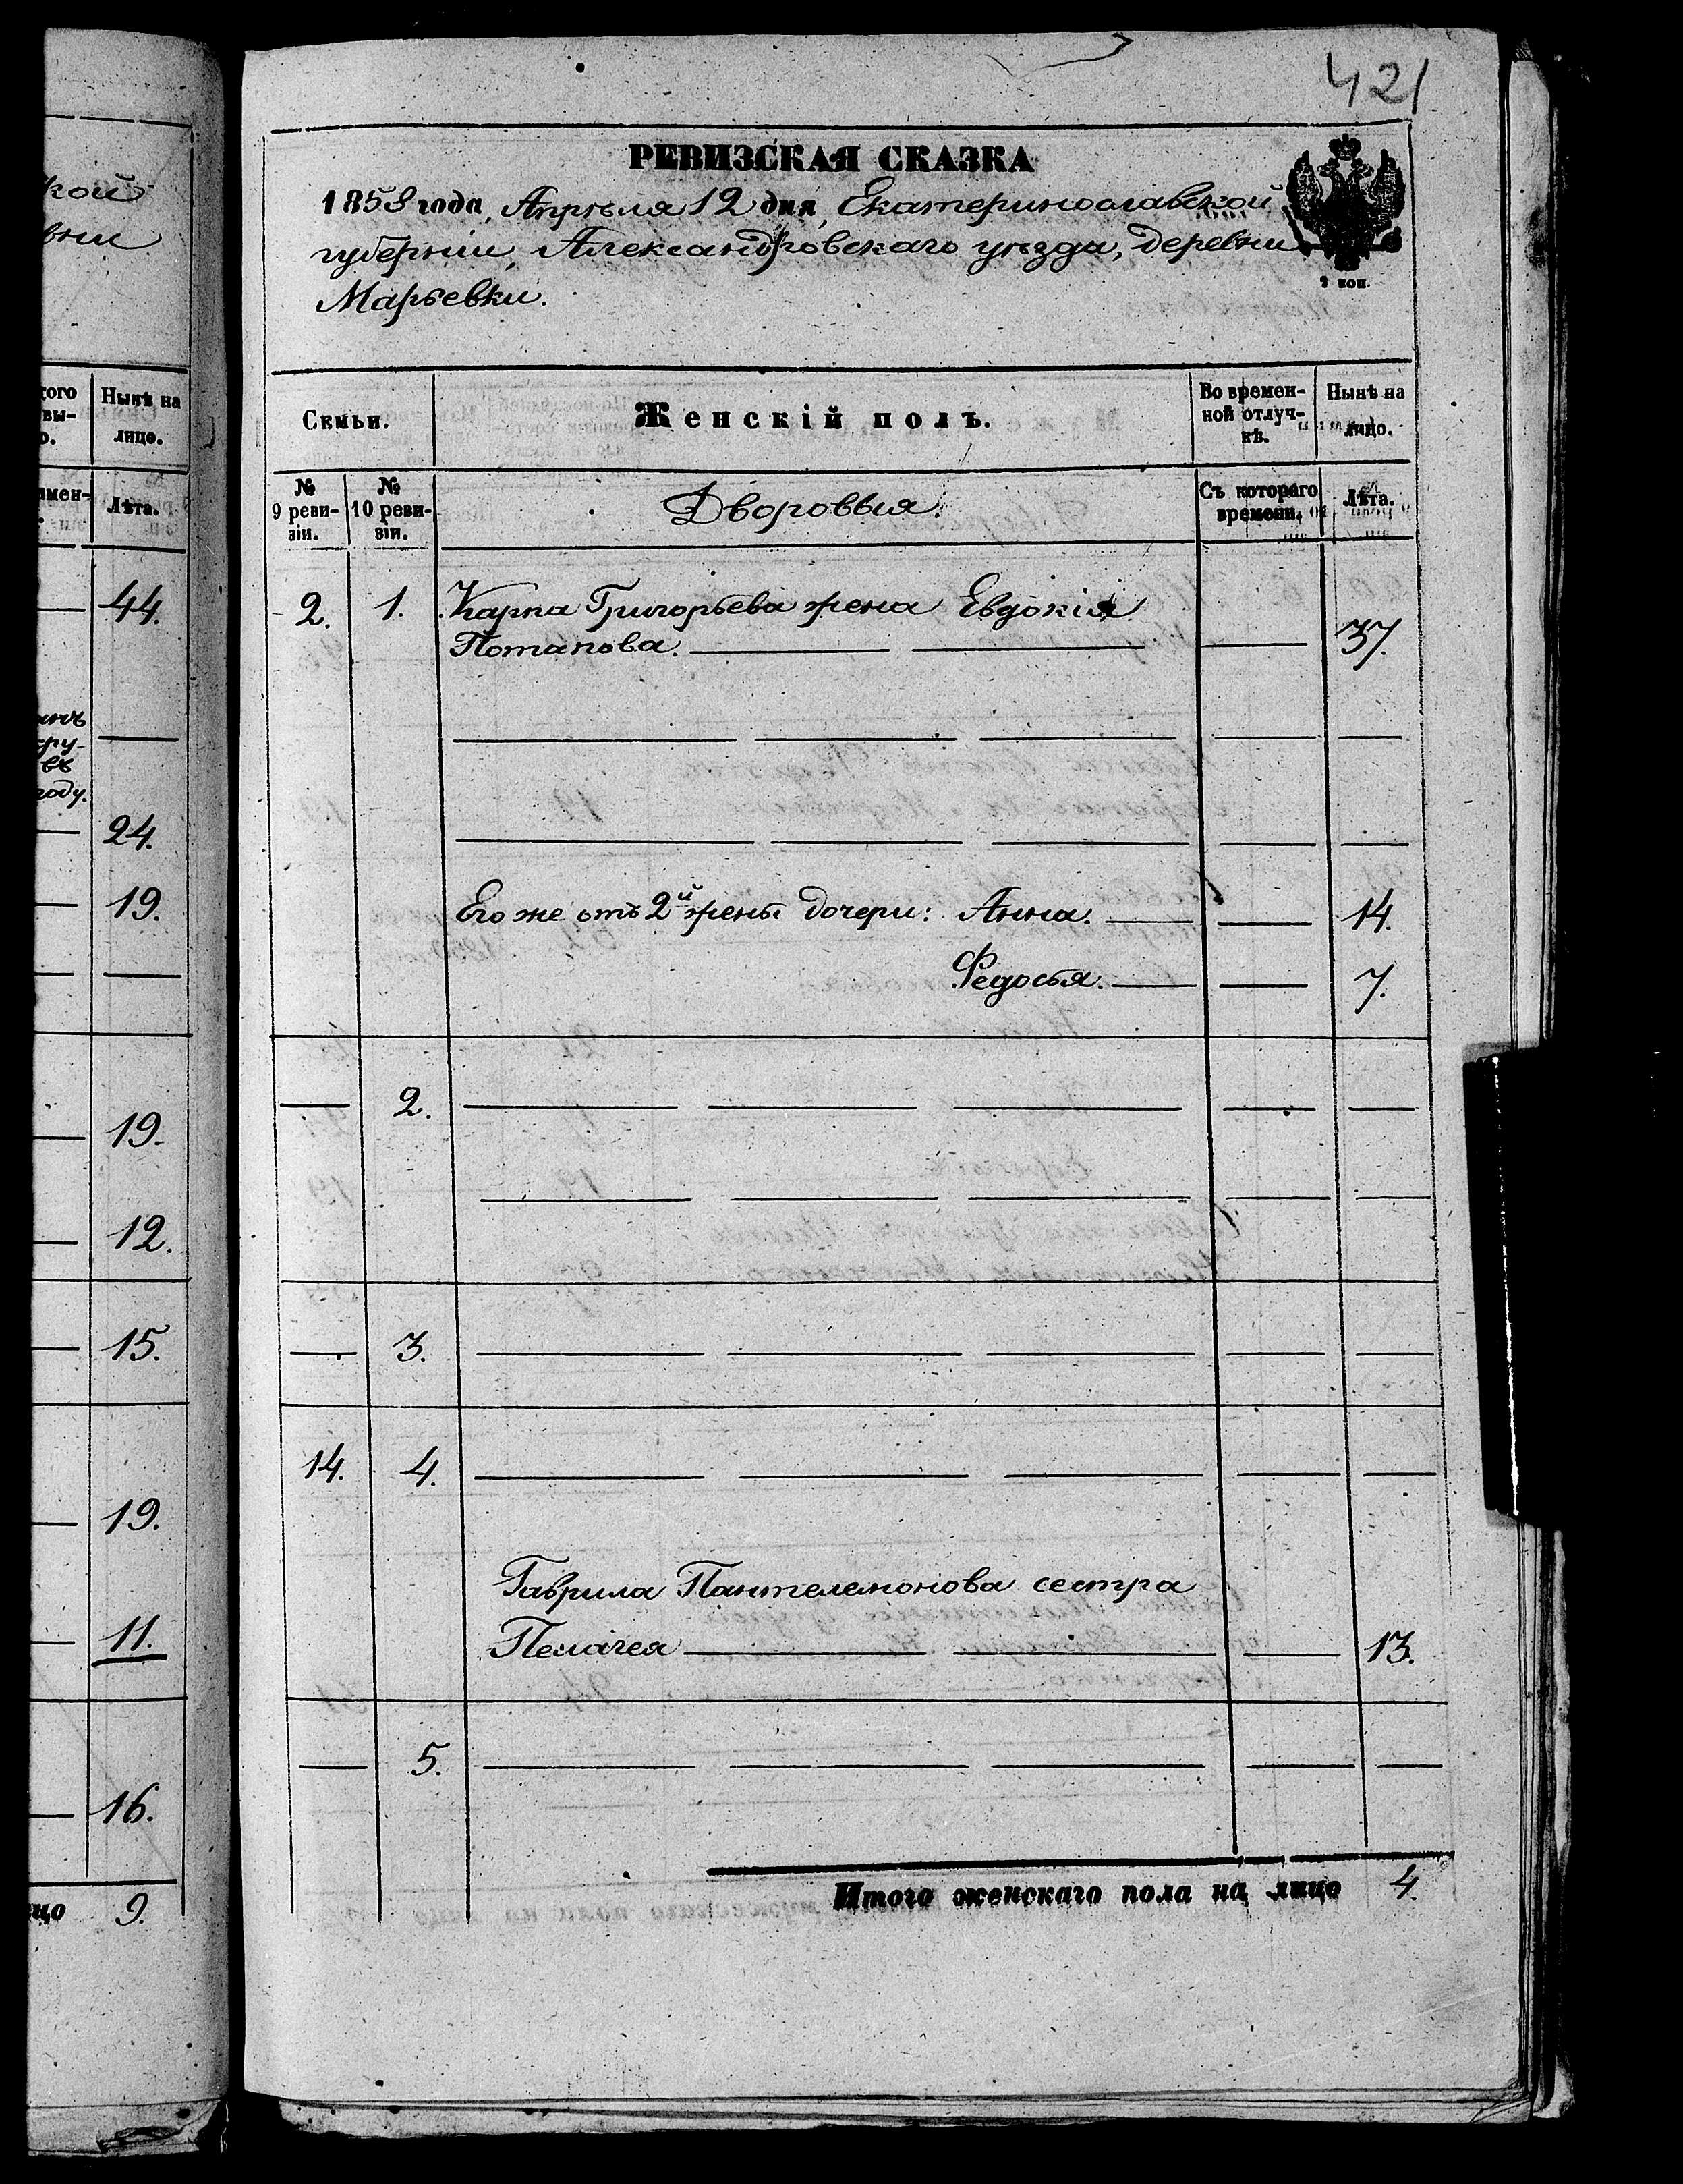 421
РЕВИЗСКАЯ СКАЗКА
1858 года, Апрѣля 12 дня, Екатеринославской
губерніи, Александровскаго уѣзда, деревни
Марьевки.
2 коп.
Семьи.
Женскій полъ.
Во времен-
ной отлуч-
кѣ.
Нынѣ на
лицо.
№
9 реви-
зіи.
№
10 реви-
зіи.
Дворовыя.
Съ котораго
времени.
Лѣта.
2. 1. Карпа Григорьева жена Евдокія
Потапова. 37.
Его же отъ 2й жены дочери: Анна. 14.
Федосья. 7.
2.
3.
14. 4.
Гаврила Пантелемонова сестра
Пелагея 13.
5.
Итого женскаго пола на лицо 4.
кой
вни
того
вы-
о.
Нынѣ на
лицо.
имен-
Лѣта.
44.
ру-
въ
году.
24.
19.
19.
12.
15.
19.
11.
16.
цо 9.